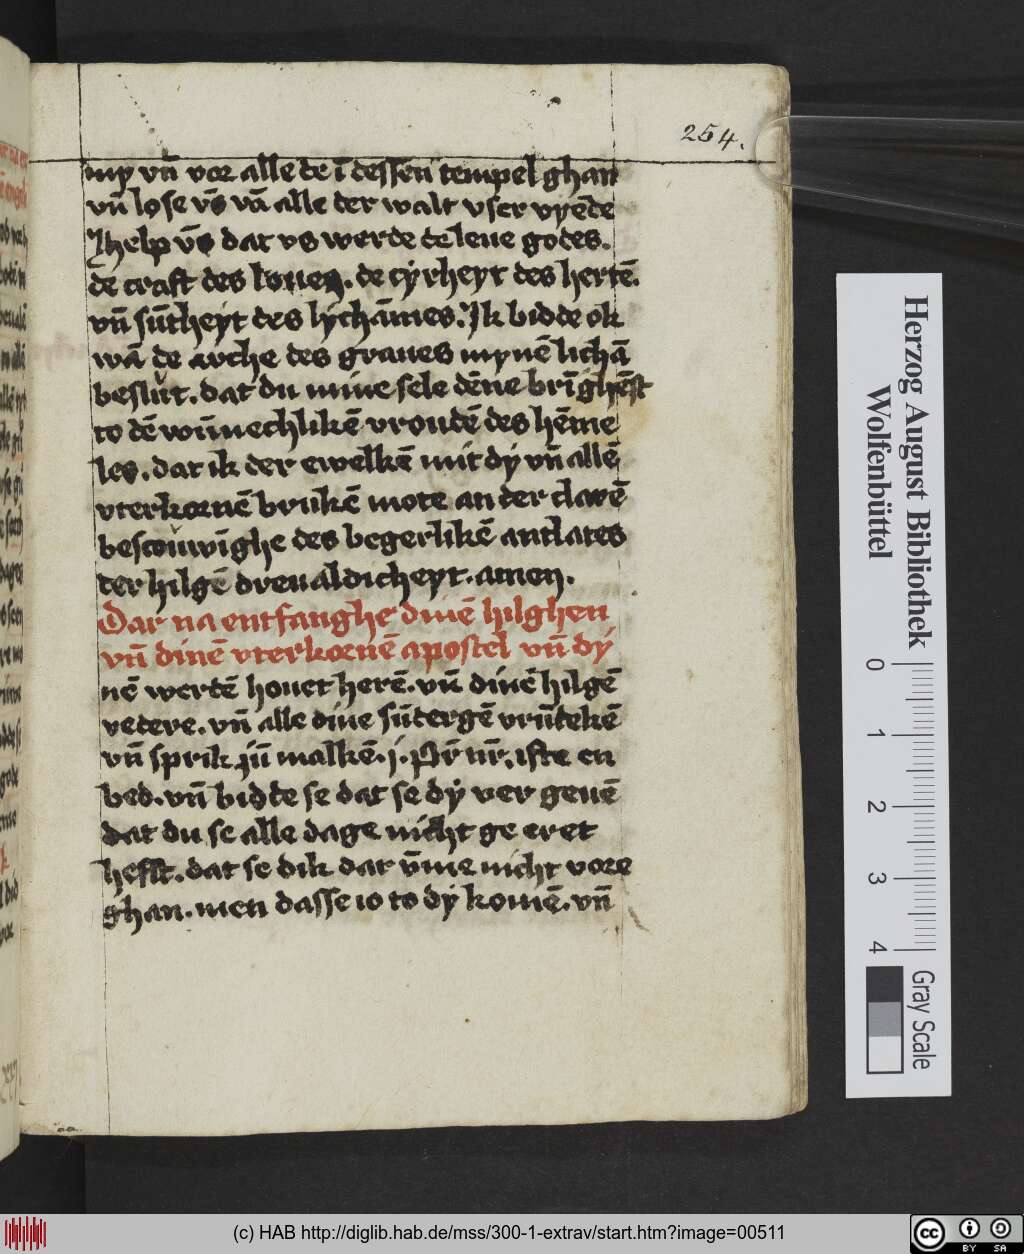 254.
my vn̄ vor alle de ī dessen tempel ghan
vn̄ lose vs̄ vā alle der walt vser vyēde
Ihelp vs̄ dat vs werde de leue godes.
de craft des louen. de cyrheyt des hertē.
vn̄ sūtheyt des lychāmes. Ik bidde ok
wā de arche des graues mynē lichā
beslut. dat du mine sele dēne brīghēst
to dē wūnechlikē vroudē des hēme
les. dat ik der ewelkē mit dy vn̄ allē
vterkornē brukē mote an der clarē
bescouwīghe des begerlikē antlates
der hilgē dreualdicheyt. amen.
Dar na entfanghe dinē hilghen
vn̄ dinē vterkornē apostel vn̄ dy
nē werdē houet herē. vn̄ dinē hilgē
vedere. vn̄ alle dine sūdergē vrūdekē
vn̄ sprik jū malkē. j. Pr̄ nr̄. iste en
bed. vn̄ bidde se dat se dy ver geuē
dat du se alle dage nicht ge eret
hefst. dat se dik dar v̄me nicht vore
ghan. men dasse io to dy komē. vn̄
Herzog August Bibliothek
Wolfenbüttel
0 1 2 3 4
Gray Scale
(c) HAB http://diglib.hab.de/mss/300-1-extrav/start.htm?image=00511
cc BY SA